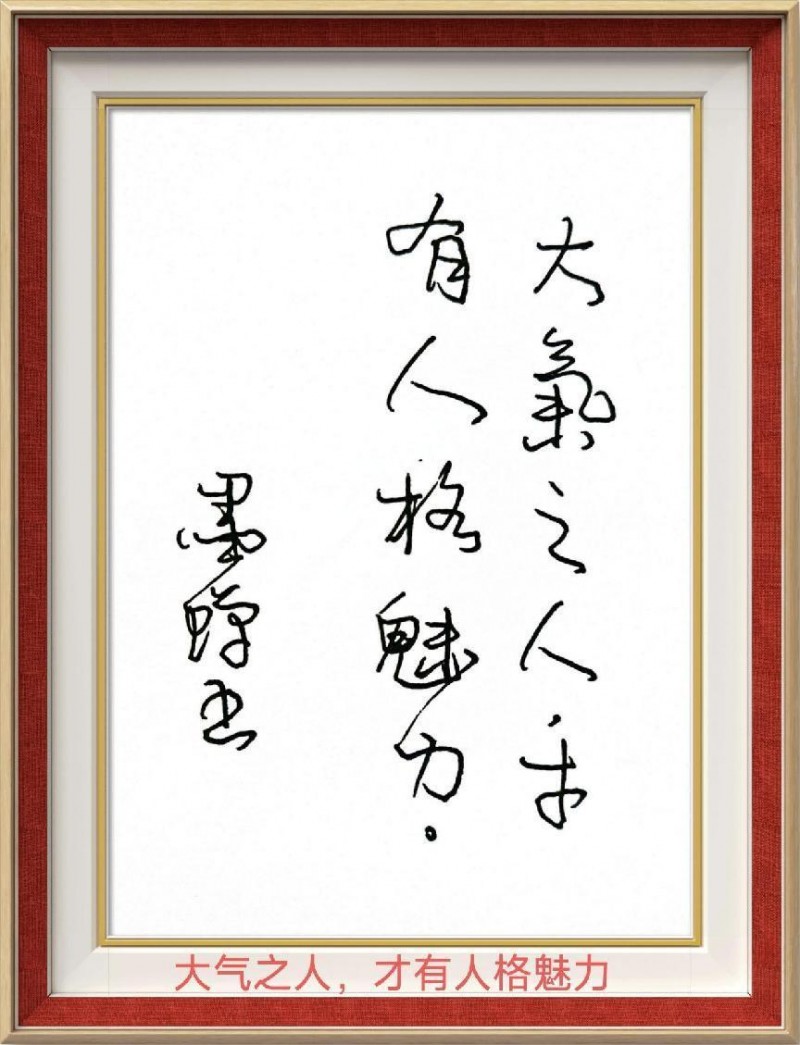 大氣之人,才
有人格魅力。
墨蝉书
大气之人，才有人格魅力